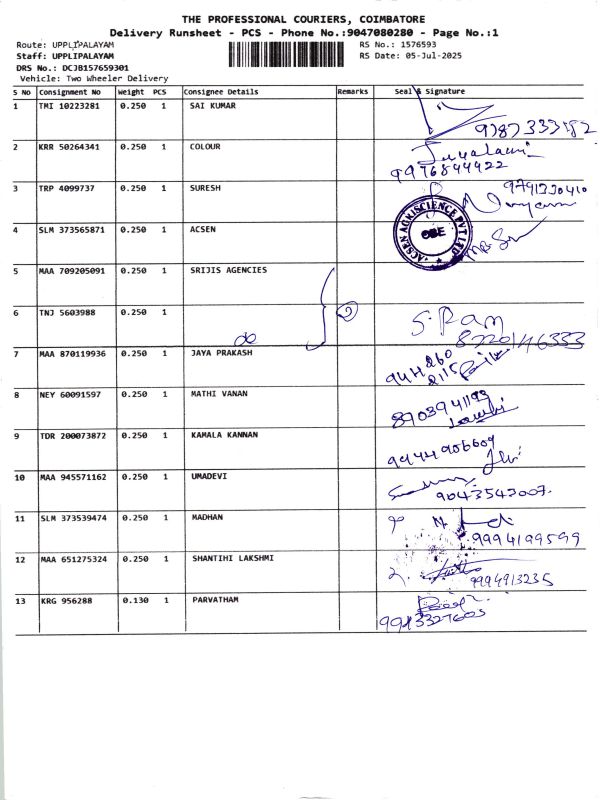 THE PROFESSIONAL COURIERS, COIMBATORE
Delivery Runsheet - PCS - Phone No.:9047080280 - Page No.:1
Route: UPPLIPALAYAM RS No.: 1576593
Staff: UPPLIPALAYAM RS Date: 05-Jul-2025
DRS No.: DCJB157659301
Vehicle: Two Wheeler Delivery
S No Consignment No Weight PCS Consignee Details Remarks Seal & Signature
1 TMI 10223281 0.250 1 SAI KUMAR
2 KRR 50264341 0.250 1 COLOUR
9976844422
3 TRP 4099737 0.250 1 SURESH 9791330410
4 SLM 373565871 0.250 1 ACSEN
ACSEN AGRISCIENCE PVT LTD
CBE
5 MAA 709205091 0.250 1 SRIJIS AGENCIES
6 TNJ 5603988 0.250 1 2 S. Ram
do
7 MAA 870119936 0.250 1 JAYA PRAKASH
8 NEY 60091597 0.250 1 MATHI VANAN
8703941193
9 TDR 200073872 0.250 1 KAMALA KANNAN
9444906609
10 MAA 945571162 0.250 1 UMADEVI
9043543007.
11 SLM 373539474 0.250 1 MADHAN
9994199599
12 MAA 651275324 0.250 1 SHANTIHI LAKSHMI
9994913235
13 KRG 956288 0.130 1 PARVATHAM
9943327605